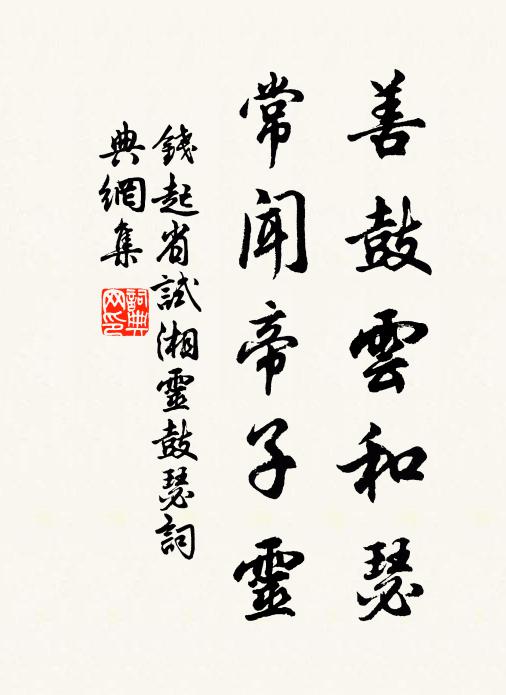 善鼓雲和瑟
常聞帝子靈
錢起省試湘靈鼓瑟詞
典網集
詞典
網印